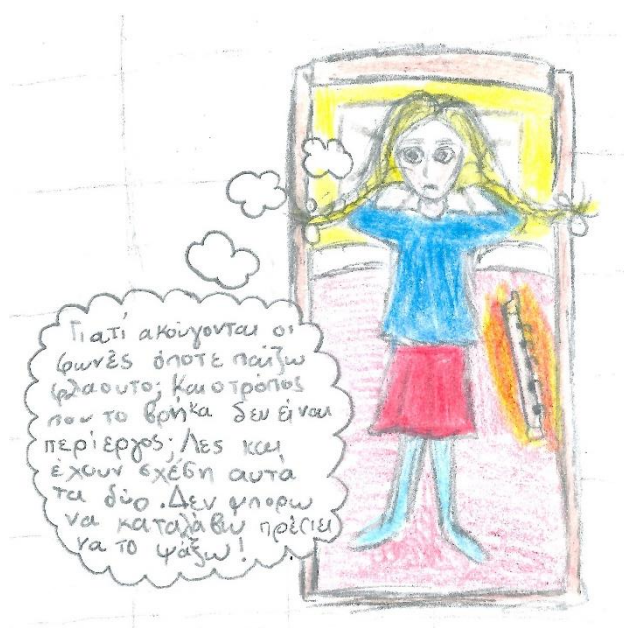 Γιατί ακούγονται οι
φωνές όποτε παίζω
φλάουτο; Και ο τρόπος
που το βρήκα δεν είναι
περίεργος; Λες και
έχουν σχέση αυτά
τα δύο. Δεν μπορώ
να καταλάβω πρέπει
να το ψάξω!